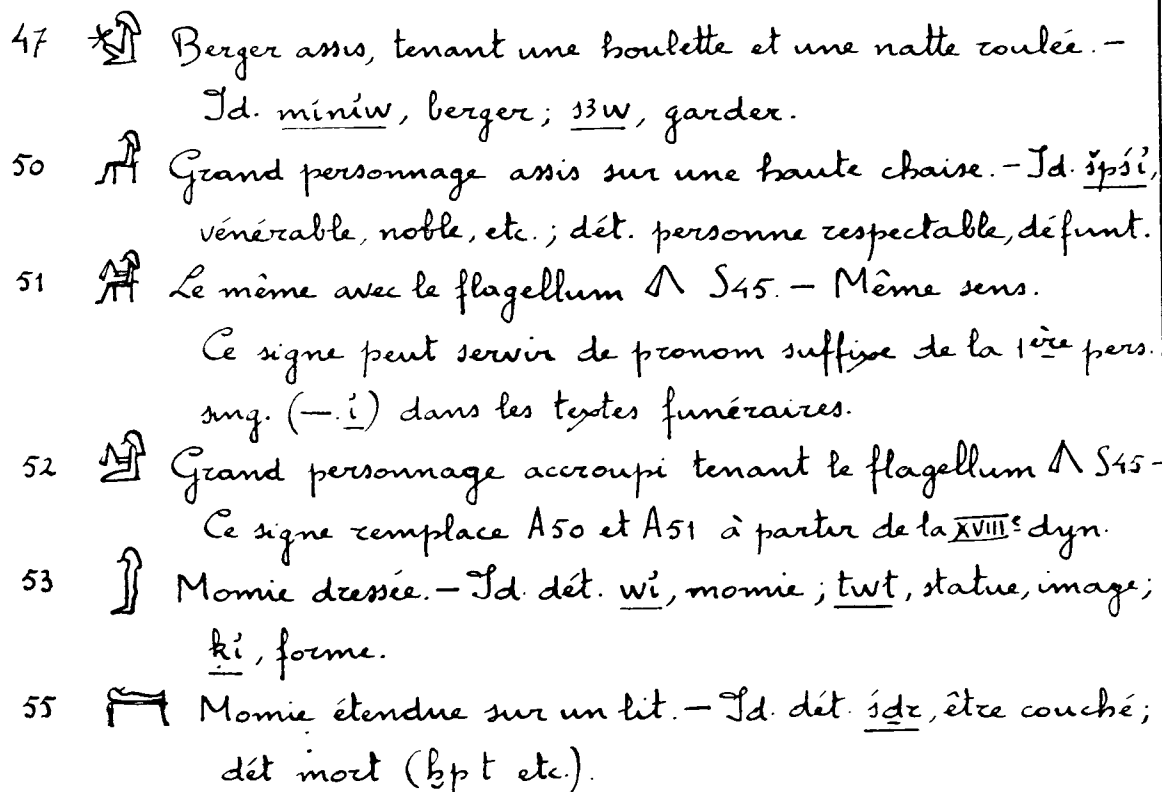 47 Berger assis, tenant une houlette et une natte roulée. –
Id. míníw, berger; s3w, garder.
50 Grand personnage assis sur une haute chaise. – Id. špśí,
vénérable, noble, etc.; dét. personne respectable, défunt.
51 Le même avec le flagellum S45. – Même sens.
Ce signe peut servir de pronom suffixe de la 1ère pers.
sing. (—.í) dans les textes funéraires.
52 Grand personnage accroupi tenant le flagellum S45 –
Ce signe remplace A50 et A51 à partir de la XVIIIe dyn.
53 Momie dressée. – Id. dét. wí, momie; twt, statue, image;
ḳí, forme.
55 Momie étendue sur un lit. – Id. dét. śḏr, être couché;
dét mort (ḫpt etc.).